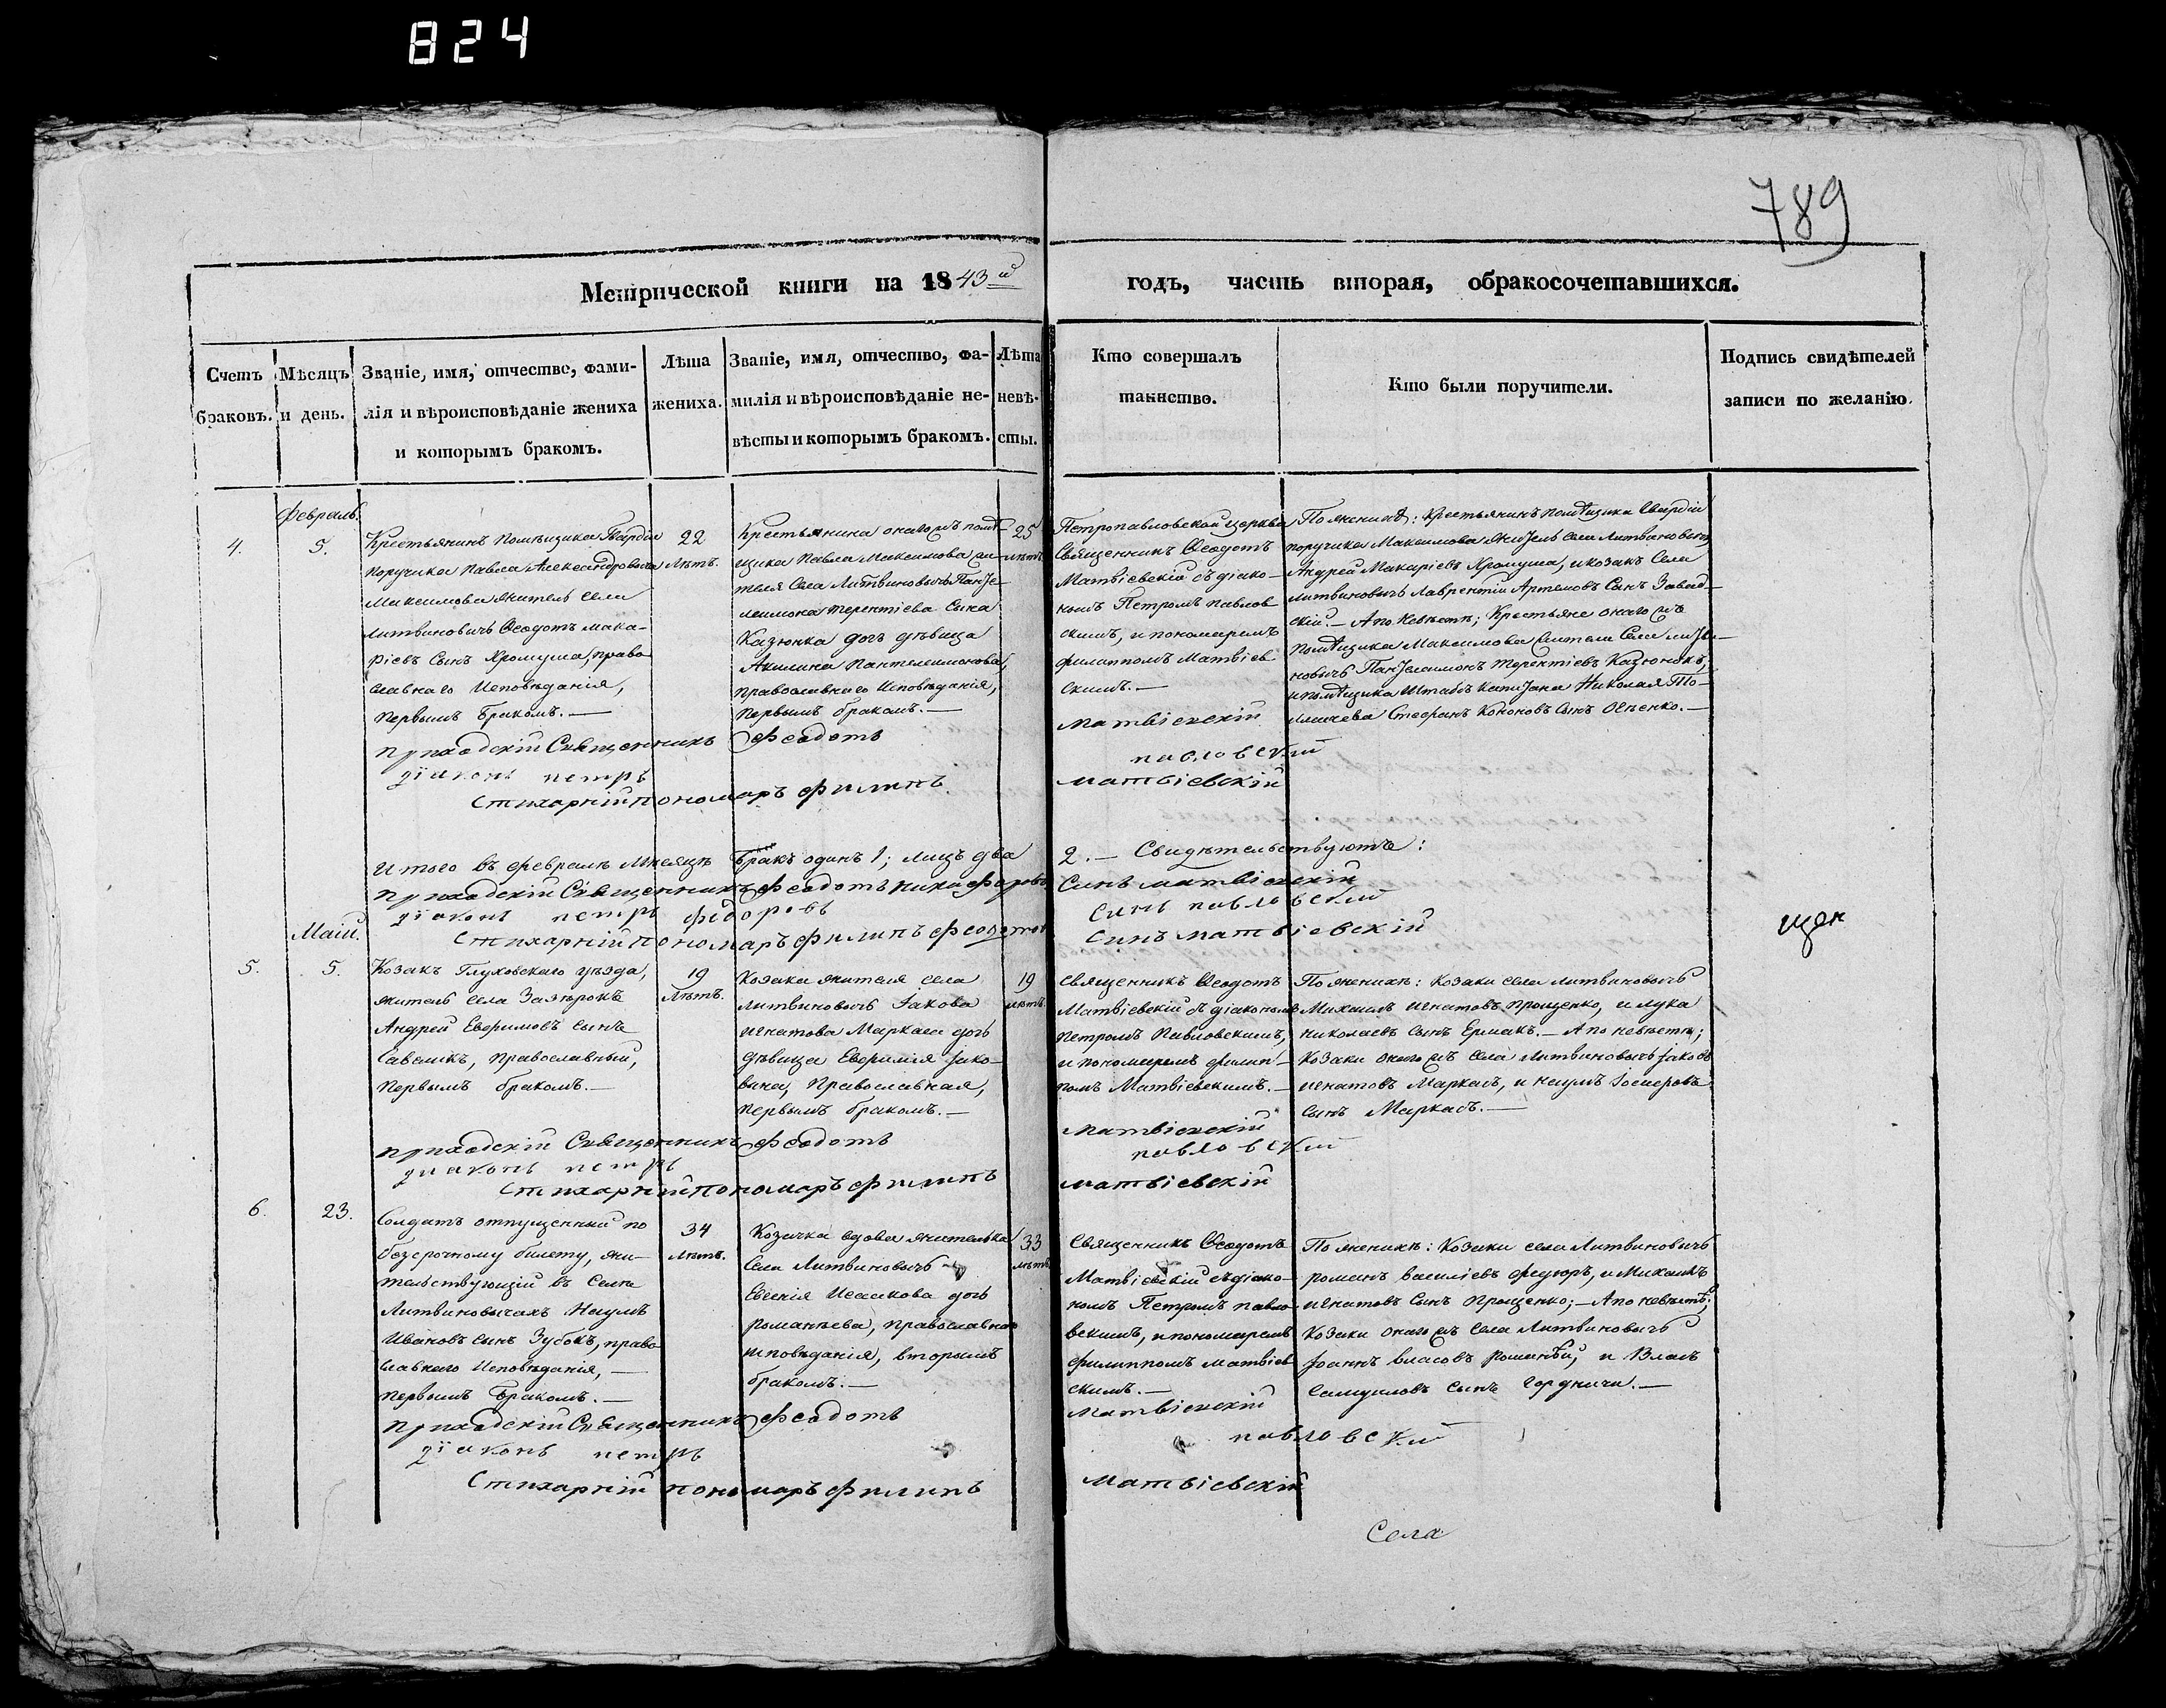 824
789
Метрической книги на 1843й
годъ, часть вторая, обракосочетавшихся.
Счетъ
браковъ.
Мѣсяцъ
и день.
Званіе, имя, отчество, фами-
лія и вѣроисповѣданіе жениха
и которымъ бракомъ.
Лѣта
жениха.
Званіе, имя, отчество, фа-
милія и вѣроисповѣданіе не-
вѣсты и которымъ бракомъ.
Лѣта
невѣ-
сты.
Кто совершалъ
таинство.
Кто были поручители.
Подпись свидѣтелей
записи по желанію.
4.
Февраль.
5.
Крестьянинъ Помѣщика Гвардіи
поручика Павла Александровича
Максимова житель села
Литвиновичъ Ѳеодотъ Мака-
ріевъ Сынъ Хромуша, право
славнаго Исповѣданія,
первымъ Бракомъ.—
22
Лѣтъ.
Крестьянина онагожъ помѣ
щика Павла Максимова жи-
теля Села Литвиновичъ Панте-
леимона Терентіева Сына
Казюнка дочь дѣвица
Акилина Пантелеимонова,
православнаго Исповѣданія,
первымъ бракомъ.—
25
лѣтъ
Петропавловской церкви
Священникъ Ѳеодотъ
Матвіевскій съ діако-
номъ Петромъ Павлов
скимъ, и пономаремъ
Филиппомъ Матвіев
скимъ.—
По женихѣ: Крестьянинъ помѣщика Гвардіи
поручика Максимова житель села Литвиновичъ
Андрей Макаріевъ Хромуша, и козакъ Села
Литвиновичъ Лаврентій Артемовъ Сынъ Завад-
скій.— А по Невѣстѣ; Крестьяне онагожъ
помѣщика Максимова жители Села Литви-
новичъ Пантелимонъ Терентіевъ Казюнокъ,
и помѣщика Штабсъ Капитана Николая
Стефанъ Кононовъ Сынъ
приходскій Священникъ Феодотъ
Матвіевскій
діаконъ петръ
павловскій
Стихарній пономаръ Филипъ
матвіевскій
Итого въ Февралѣ Мѣсяцѣ Бракъ одинъ 1; лицъ два
2.— Свидѣтельствуютъ:
приходскій Священникъ Феодотъ Никифоровъ
Синъ матвіевскій
діаконъ петръ федоровъ
Синъ павловскій
Стихарній пономаръ Филипъ Феодотовъ
Синъ матвіевскій
5.
Маій.
5.
Козакъ Глуховскаго уѣзда,
житель села Зазѣрокъ
Андрей Евфимовъ сынъ
Савостікъ, православный,
первымъ бракомъ.—
19
Лѣтъ.
Козака жителя села
Литвиновичъ Іакова
Игнатова Маркаса дочь
дѣвица Евфимія Іако-
влева, Православная,
первымъ бракомъ.—
19
лѣтъ
Священникъ Ѳеодотъ
Матвіевскій съ діакономъ
Петромъ Павловскимъ,
и пономаремъ Филип-
помъ Матвіевскимъ.—
По женихѣ: Козаки села Литвиновичъ
Михаилъ Игнатовъ Прощенко, и Лука
Николаевъ сынъ Ермакъ.— А по невѣстѣ;
Козаки онагожъ села Литвиновичъ Іаковъ
Игнатовъ Маркасъ, и Наумъ Іосифовъ
сынъ Маркасъ.—
приходскій Священникъ Феодотъ
Матвіевскій
діаконъ петръ
павловскій
Стихарній пономаръ Филипъ
матвіевскій
6.
23.
Солдатъ отпущенный по
безсрочному билету, жи-
тельствующій въ Селѣ
Литвиновичахъ Наумъ
Ивановъ Сынъ Зубокъ, право
славнаго Исповѣданія,—
первымъ Бракомъ.—
34
Лѣтъ.
Козачка вдова жителька
Села Литвиновичъ
Евгенія Исаакова дочь
Романѣева, православнаго
исповѣданія, вторымъ
бракомъ.—
33
лѣтъ
Священникъ Ѳеодотъ
Матвіевскій съ діако-
номъ Петромъ Павло-
вскимъ, и пономаремъ
Филиппомъ Матвіев
скимъ.—
По женихѣ: Козаки села Литвиновичъ
Романъ Василіевъ Федюръ, и Михаилъ
Игнатовъ Сынъ Прощенко;— А по невѣстѣ;
Козаки онагожъ села Литвиновичъ
Іоаннъ Власовъ Романѣй, и Власъ
Самуиловъ сынъ
приходскій Священникъ Феодотъ
Матвіевскій
діаконъ петръ
павловскій
Стихарній пономаръ Филипъ
матвіевскій
Села